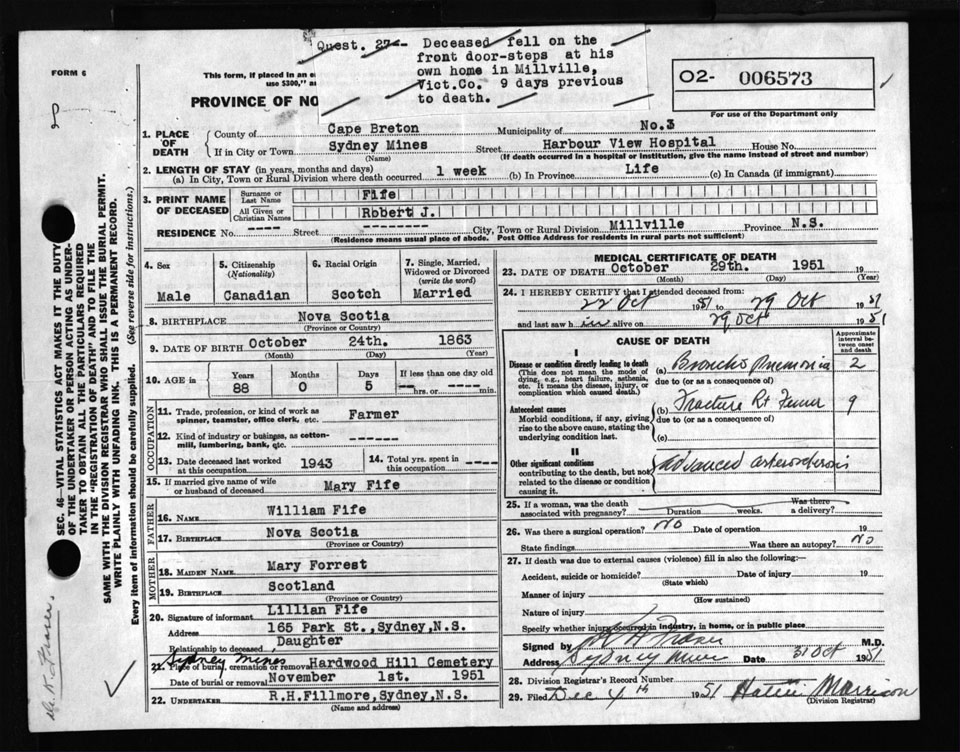 Quest. 27- Deceased fell on the
front door-steps at his
own home in Millville,
Vict.Co. 9 days previous
to death.
O2- 006573
For use of the Department only
FORM 6
This form, if placed in an
use $300," a
PROVINCE OF NO
1. PLACE OF DEATH
County of Cape Breton Municipality of No.3
If in City or Town Sydney Mines Street Harbour View Hospital House No.
(Name) (If death occurred in a hospital or institution, give the name instead of street and number)
2. LENGTH OF STAY (in years, months and days)
(a) In City, Town or Rural Division where death occurred 1 week (b) In Province Life (c) In Canada (if immigrant)
3. PRINT NAME OF DECEASED
Surname or Last Name Fife
All Given or Christian Names Robert J.
RESIDENCE No. ---- Street ---- City, Town or Rural Division Millville Province N.S.
(Residence means usual place of abode. Post Office Address for residents in rural parts not sufficient)
4. Sex Male
5. Citizenship (Nationality) Canadian
6. Racial Origin Scotch
7. Single, Married, Widowed or Divorced (write the word) Married
8. BIRTHPLACE Nova Scotia
(Province or Country)
9. DATE OF BIRTH October 24th. 1863
(Month) (Day) (Year)
10. AGE in Years 88 Months 0 Days 5 If less than one day
---hrs. or ----min.
OCCUPATION
11. Trade, profession, or kind of work as spinner, teamster, office clerk, etc. Farmer
12. Kind of industry or business, as cotton-mill, lumbering, bank, etc. -----
13. Date deceased last worked at this occupation 1943
14. Total yrs. spent in this occupation ----
15. If married give name of wife or husband of deceased Mary Fife
FATHER
16. NAME William Fife
17. BIRTHPLACE Nova Scotia
(Province or Country)
MOTHER
18. MAIDEN NAME Mary Forrest
19. BIRTHPLACE Scotland
(Province or Country)
20. Signature of informant Lillian Fife
Address 165 Park St.,Sydney,N.S.
Relationship to deceased Daughter
Sydney Mines
21. Place of burial, cremation or removal Hardwood Hill Cemetery
Date of burial or removal November 1st. 1951
22. UNDERTAKER R.H.Fillmore,Sydney,N.S.
(Name and address)
MEDICAL CERTIFICATE OF DEATH
23. DATE OF DEATH October 29th. 1951 19
(Month) (Day) (Year)
24. I HEREBY CERTIFY that I attended deceased from:
22 Oct 1951 to 29 Oct 1951
and last saw him alive on 29 Oct 1951
CAUSE OF DEATH
Approximate interval between onset and death
I
Disease or condition directly leading to death
(This does not mean the mode of dying, e.g., heart failure, asthenia, etc. It means the disease, injury, or complication which caused death.)
(a) Broncho Pneumonia 2
due to (or as a consequence of)
Antecedent causes
Morbid conditions, if any, giving rise to the above cause, stating the underlying condition last.
(b) Fracture Rt Femur 9
due to (or as a consequence of)
(c)
II
Other significant conditions
contributing to the death, but not related to the disease or condition causing it.
Advanced arteriosclerosis
25. If a woman, was the death associated with pregnancy? Duration weeks. Was there a delivery?
26. Was there a surgical operation? NO Date of operation 19
State findings Was there an autopsy? NO
27. If death was due to external causes (violence) fill in also the following:—
Accident, suicide or homicide? Date of injury 19
(State which)
Manner of injury
(How sustained)
Nature of injury
Specify whether injury occurred in industry, in home, or in public place
Signed by Fraser M.D.
Address Sydney Mines Date 31 Oct 1951
28. Division Registrar's Record No.
29. Filed Dec 4th 1951 Hattie Morrison
(Division Registrar)
SEC. 46—VITAL STATISTICS ACT MAKES IT THE DUTY
OF THE UNDERTAKER OR PERSON ACTING AS UNDER-
TAKER TO OBTAIN ALL THE PARTICULARS REQUIRED
IN THE "REGISTRATION OF DEATH" AND TO FILE THE
SAME WITH THE DIVISION REGISTRAR WHO SHALL ISSUE THE BURIAL PERMIT.
WRITE PLAINLY WITH UNFADING INK. THIS IS A PERMANENT RECORD.
Every item of information should be carefully supplied. (See reverse side for instructions.)
Fraser.